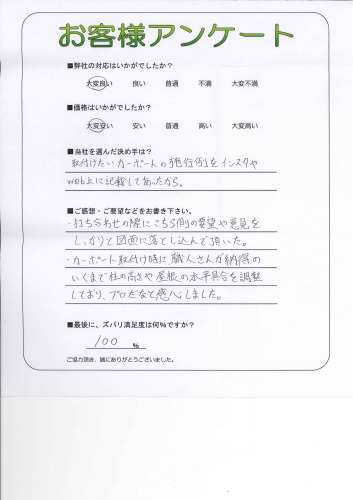 お客様アンケート
■弊社の対応はいかがでしたか？
大変良い 良い 普通 不満 大変不満
■価格はいかがでしたか？
大変安い 安い 普通 高い 大変高い
■当社を選んだ決め手は？
取付けたいカーポートの施行例をインスタや
web上に記載してあったから。
■ご感想・ご要望などをお書き下さい。
・打ち合わせの際にこちら側の要望や意見を
しっかりと図面に落とし込んで頂いた。
・カーポート取付け時に職人さんが納得の
いくまで柱の高さや屋根の水平具合を調整
しており、プロだなと感心しました。
■最後に、ズバリ満足度は何％ですか？
100 ％
ご協力頂き、誠にありがとうございました。